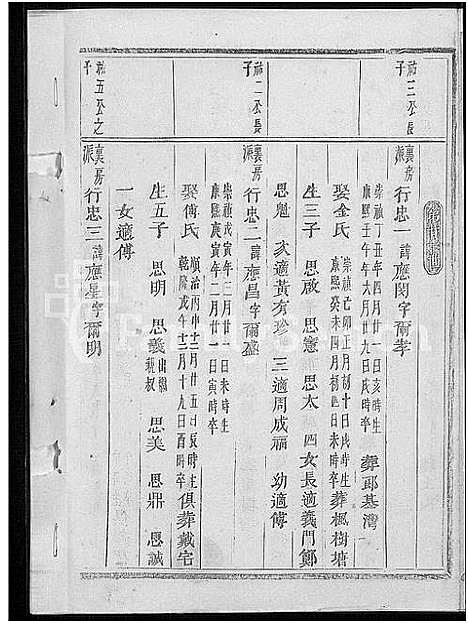 祐三公長子
襄房派 行忠一 諱應閔字爾孝
崇禎丁丑年四月廿一日亥時生
康熙壬午年六月廿九日戌時卒 葬邱基灣
娶金氏 崇禎己卯正月初十日戌時生
康熙癸未四月初十日未時卒 葬楓樹塘
生三子 思啟 思憲 思太 四女長適義門鄭
思魁 次適黃有珍 三適周成福 幼適傅
祐二公長子
襄房派 行忠二 諱應昌字爾盛
崇禎戊寅年三月廿一日未時生
康熙庚寅年二月廿一日寅時卒
娶傅氏 順治丙申十二月廿五日辰時生
乾隆戊午十二月十九日酉時卒 俱葬戴宅
生五子 思明 思義出繼叔 思美 思鼎 思誠
一女適傅
祐五公之子
襄房派 行忠三 諱應星字爾明